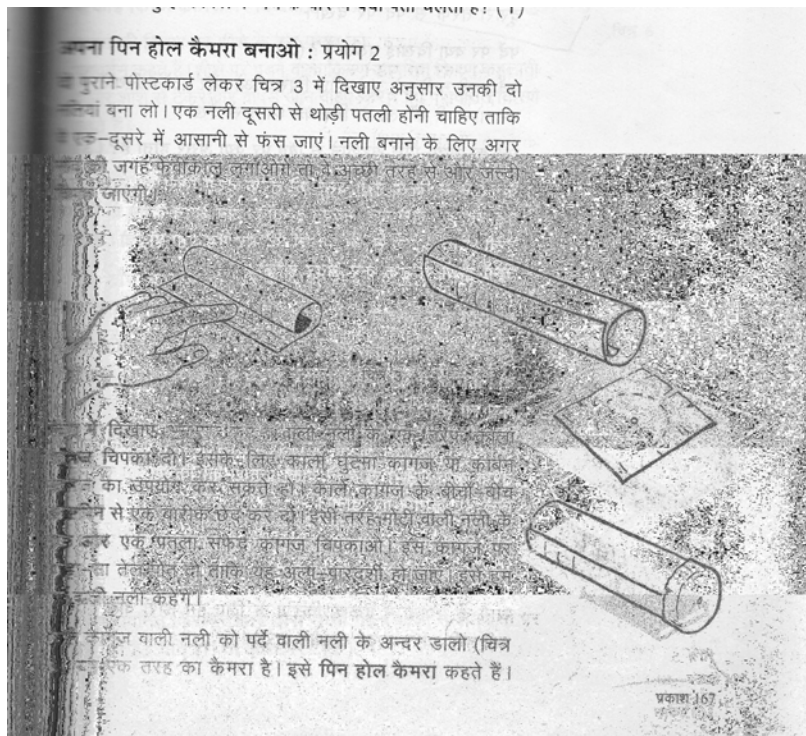 के बारे में क्या पता चलता है? (1)
अपना पिन होल कैमरा बनाओ : प्रयोग 2
पुराने पोस्टकार्ड लेकर चित्र 3 में दिखाए अनुसार उनकी दो
नलियां बना लो। एक नली दूसरी से थोड़ी पतली होनी चाहिए ताकि
एक-दूसरे में आसानी से फंस जाएं। नली बनाने के लिए अगर
की जगह फेवीकोल लगाओगे तो वे अच्छी तरह से और जल्दी
जाएंगी।
में दिखाए वाली नली के एक
चिपका दो। इसके लिए काला घुटमा कागज या कार्बन
का उपयोग कर सकते हो। काले कागज के बीचों-बीच
पिन से एक बारीक छेद कर दो। इसी तरह मोटी वाली नली के
ओर एक पतला सफेद कागज चिपकाओ। इस कागज पर
सा तेल पोत दो ताकि यह अल्प-पारदर्शी हो जाए। इसे हम
वाली नली कहेंगे।
कागज वाली नली को पर्दे वाली नली के अन्दर डालो (चित्र
एक तरह का कैमरा है। इसे पिन होल कैमरा कहते हैं।
प्रकाश 167